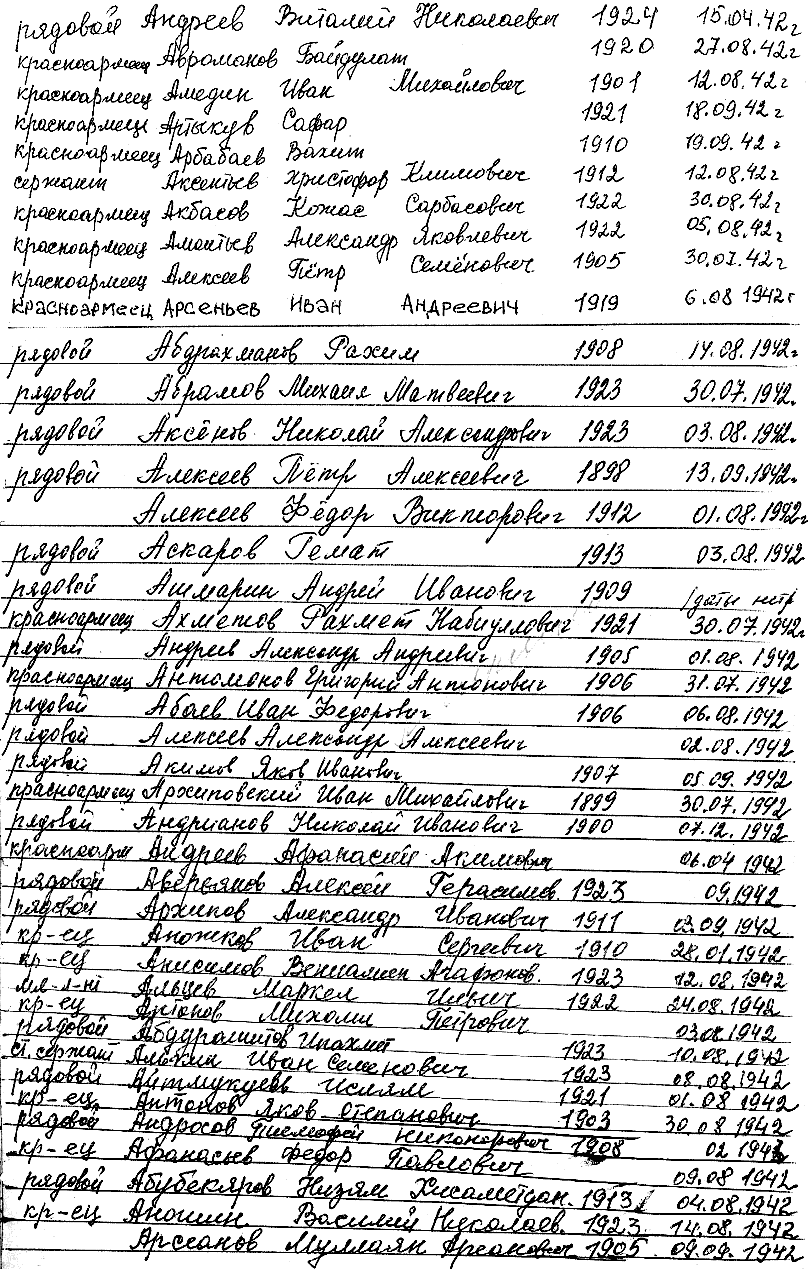 рядовой Андреев Виталий Николаевич 1924 15.04.42г
красноармеец Авроманов Байдулат 1920 27.08.42г
красноармеец Амедин Иван Михайлович 1901 12.08.42г
красноармеец Артыкув Сафар 1921 18.09.42г
красноармеец Арбабаев Вахит 1910 19.09.42г
сержант Аксентьев Христофор Климович 1912 12.08.42г
красноармеец Акбасов Кожас Сарбасович 1922 30.08.42г
красноармеец Амонтьев Александр Яковлевич 1922 05.08.42г
красноармеец Алексеев Пётр Семёнович 1905 30.07.42г
красноармеец Арсеньев Иван Андреевич 1919 6.08 1942г
рядовой Абдрахманов Рахим 1908 14.08.1942г
рядовой Абрамов Михаил Матвеевич 1923 30.07.1942г
рядовой Аксёнов Николай Александрович 1923 03.08.1942г
рядовой Алексеев Пётр Алексеевич 1898 13.09.1942г
Алексеев Фёдор Викторович 1912 01.08.1942г
рядовой Аскаров Гемат 1913 03.08.1942
рядовой Ашмарин Андрей Иванович 1909 /даты нет
красноармеец Ахметов Рахмет Набиуллович 1921 30.07.1942г
рядовой Андреев Александр Андреевич 1905 01.08.1942
красноармеец Антомонов Григорий Антонович 1906 31.07.1942
рядовой Абаев Иван Федорович 1906 06.08.1942
рядовой Алексеев Александр Алексеевич 02.08.1942
рядовой Акимов Яков Иванович 1907 05 09.1942
красноармеец Архиповский Иван Михайлович 1899 30.07.1942
рядовой Андрианов Николай Иванович 1900 07.12.1942
красноарм Андреев Афанасий Акимович 06.04 1942
рядовой Аверьянов Алексей Герасимов. 1923 09.1942
рядовой Архипов Александр Иванович 1911 03.09.1942
кр-ец Аножков Иван Сергеевич 1910 28.01.1942
кр-ец Анисимов Вениамин Агафонов. 1923 12.08.1942
мл-л-нт Альцев Маркел Ильич 1922 24.08.1942
кр-ец Антонов Михаил Петрович 03.08.1942
рядовой Абдурашитов Ипахмет 1923 10.08.1942
ст. сержант Алькин Иван Семенович 1923 08.08.1942
рядовой Айтмукуев Ислям 1921 01.08 1942
кр-ец Антонов Яков Степанович 1903 30 08 1942
рядовой Андросов Тимофей Никонорович 1908 02 1942
кр-ец Афанасьев Федор Павлович 09.08 1942
рядовой Абубекяров Низям Хисаметдин. 1913 04.08.1942
кр-ец Аношин Василий Николаев. 1923. 14.08.1942
Арсланов Муллаян Арсанович 1905 09.09.1942